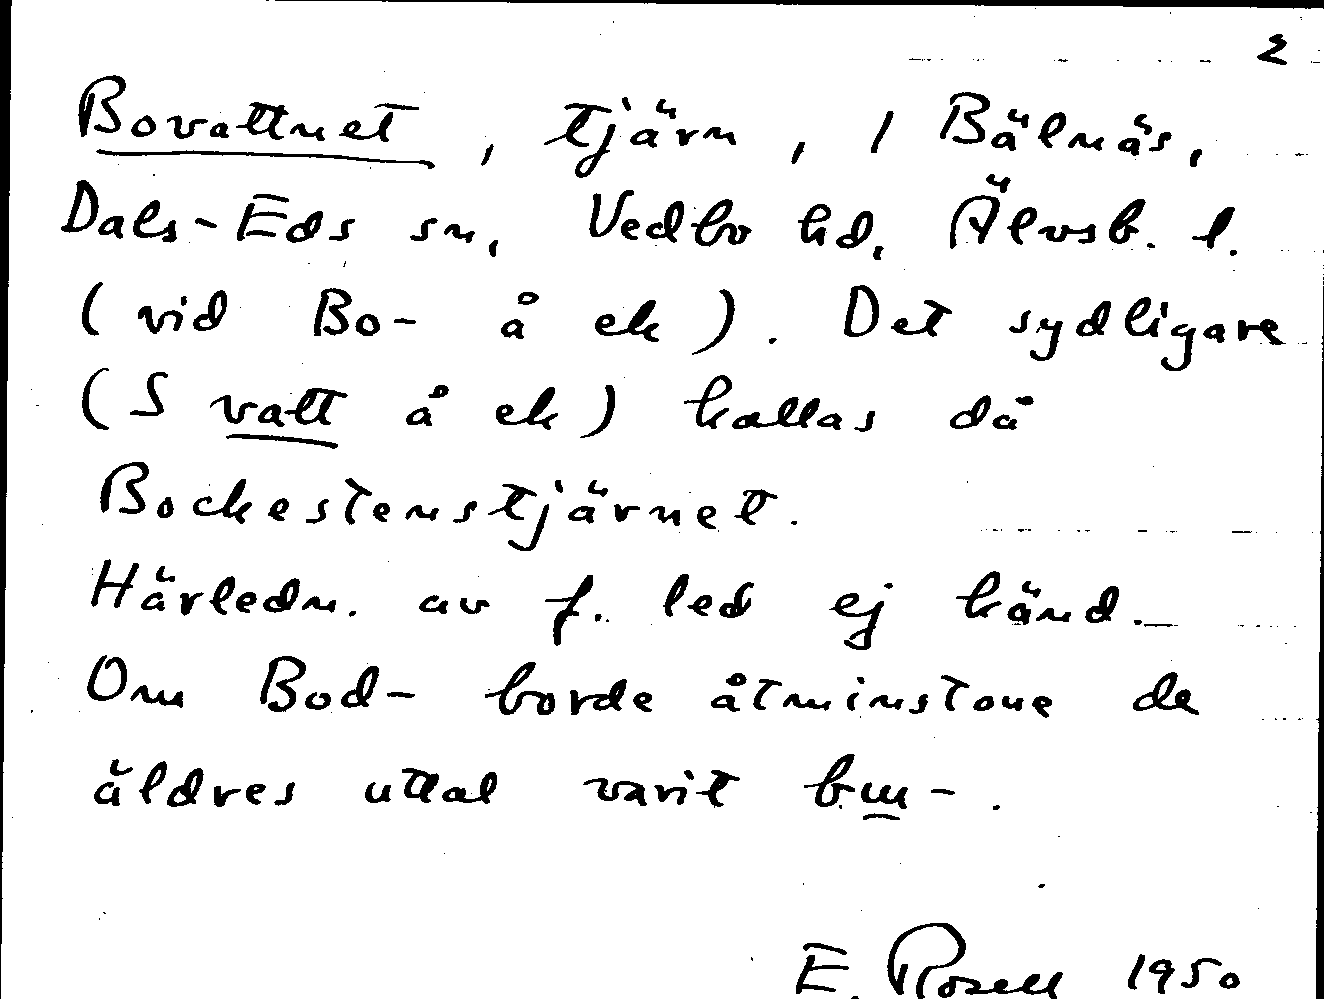 2
Bovattnet, tjärn, 1 Bälnäs,
Dals-Eds sn, Vedbo hd, Älvsb. l.
(vid Bo- å ek). Det sydligare
(S vatt å ek) kallas då
Bockestenstjärnet.
Härledn. av f. led ej känd.
Om Bod- borde åtminstone de
äldres uttal varit
E. Rosell 1950